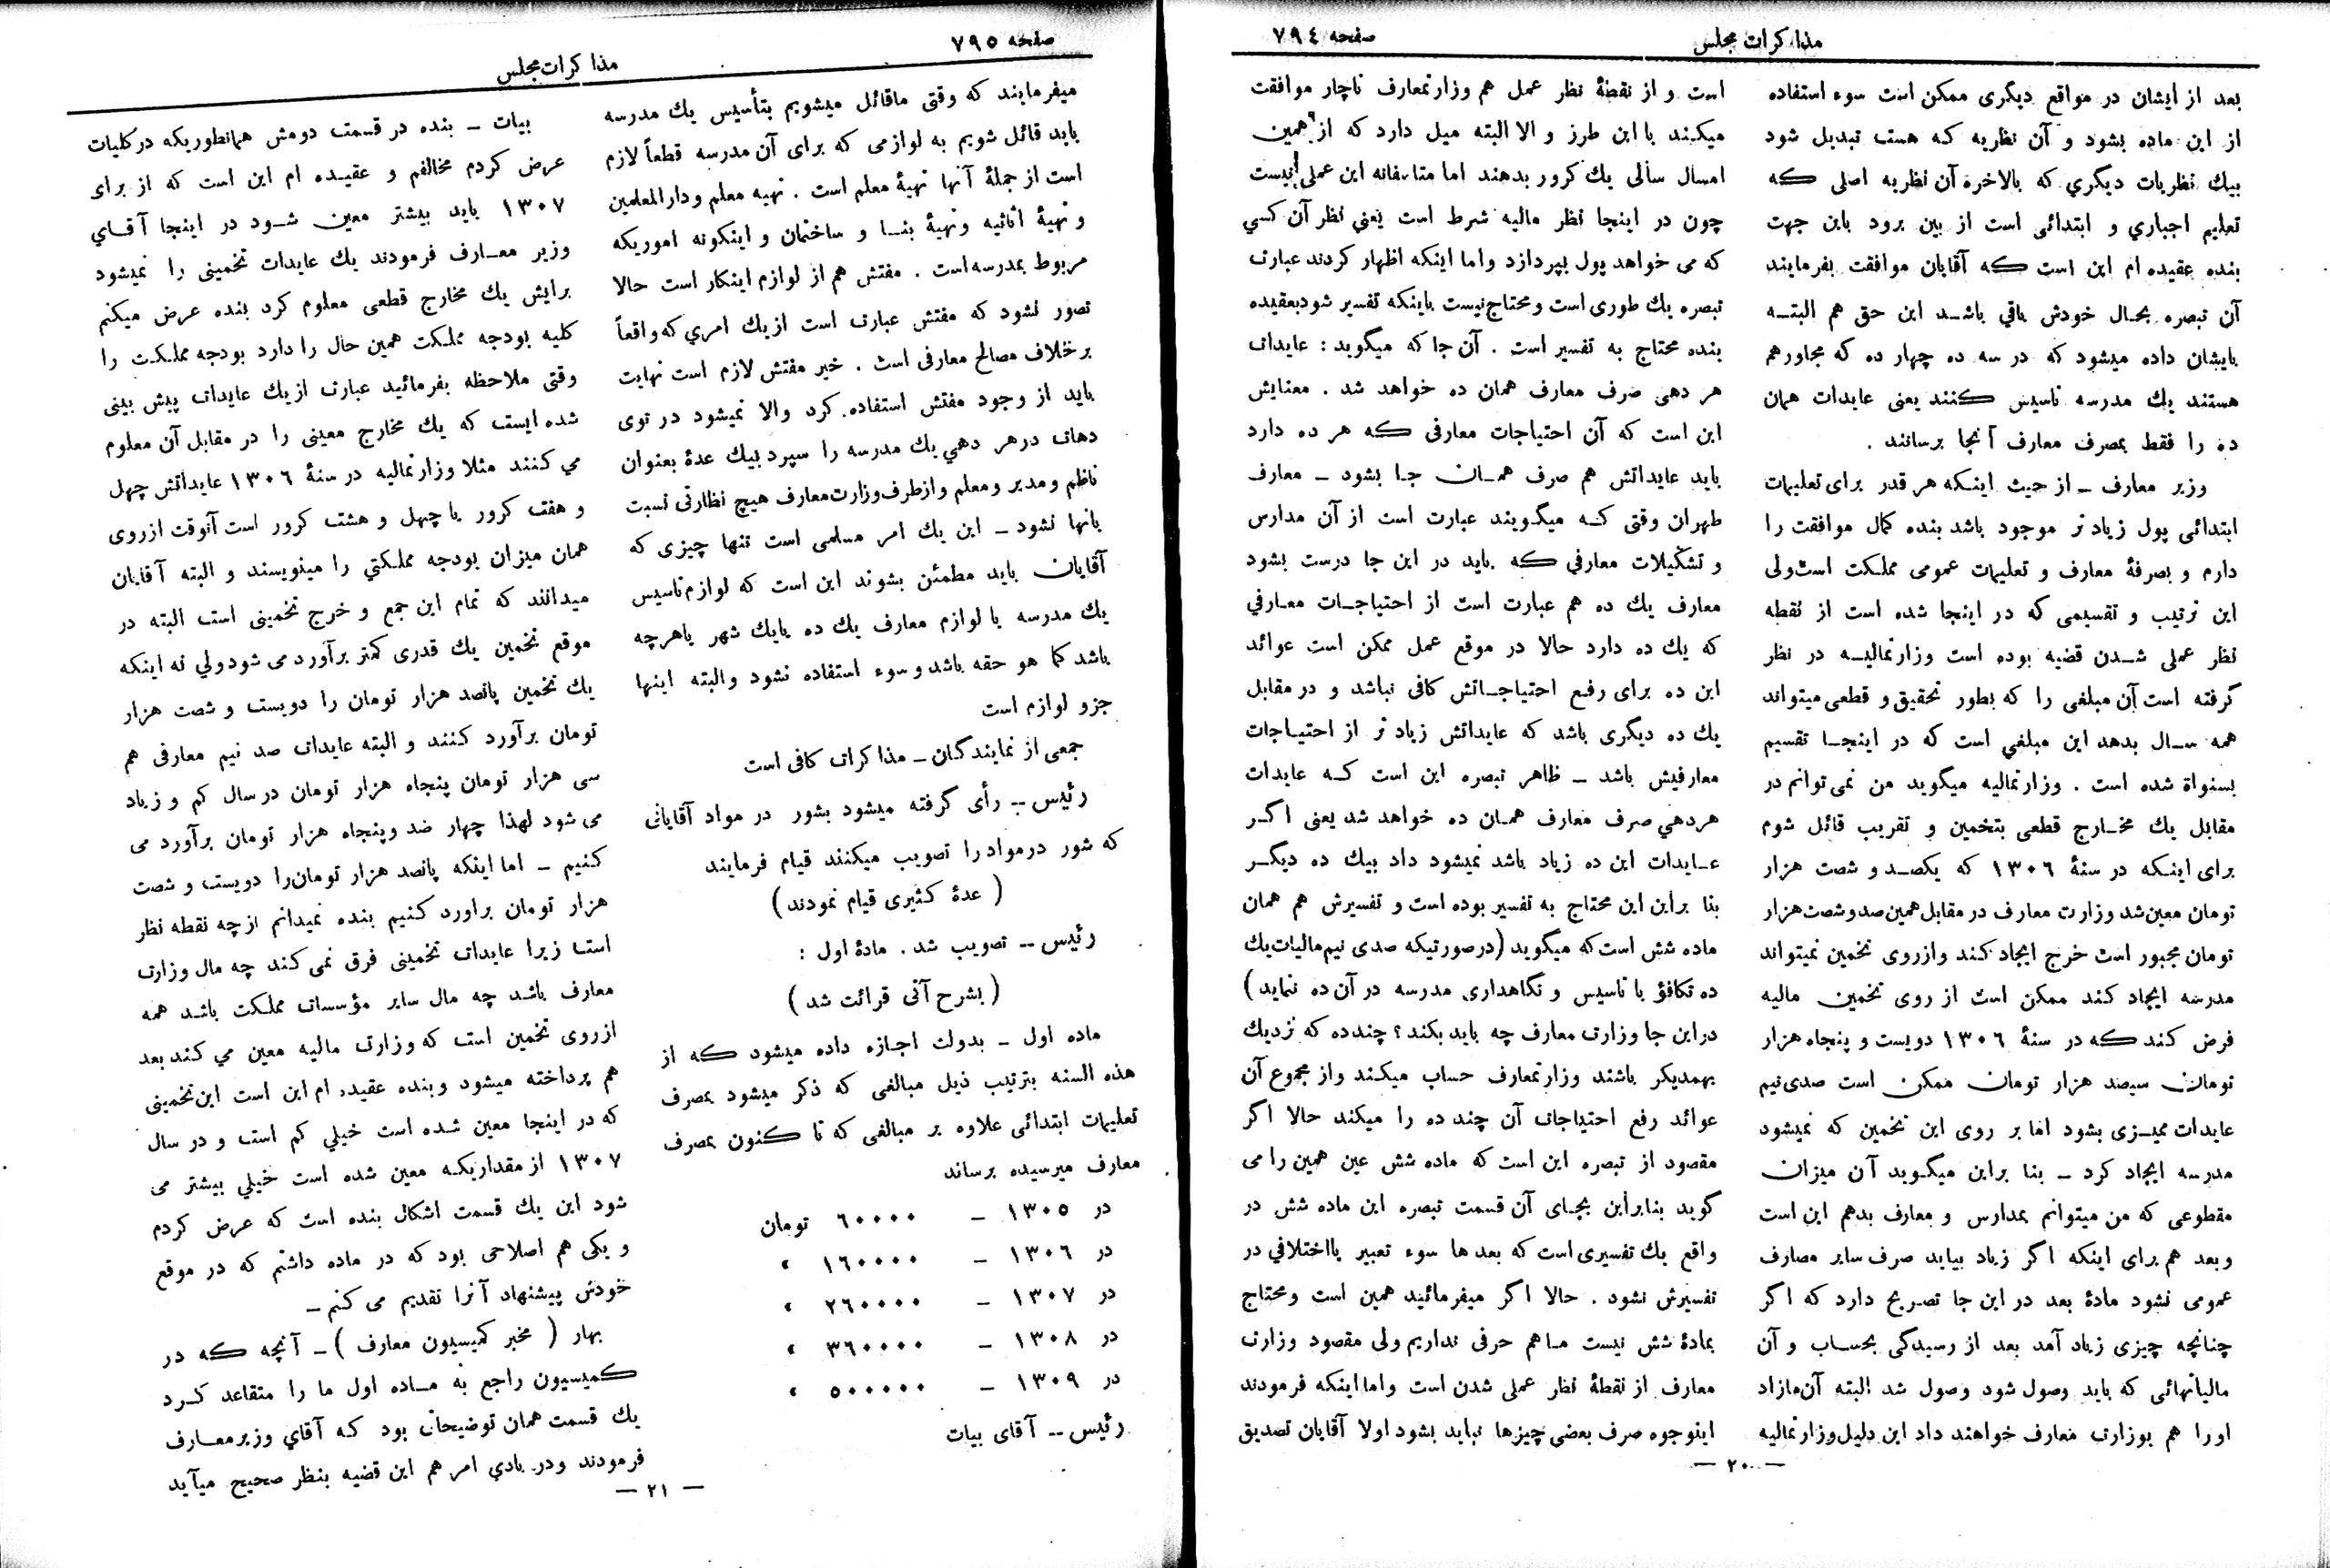 مذاکرات مجلس
صفحه ۷۹٤
بعد از ایشان در مواقع دیگری ممکن است سوء استفاده
از این ماده بشود و آن نظریه که هست تبدیل شود
بیك نظریات دیگری که بالاخره آن نظریه اصلی که
تعلیم اجباری و ابتدائی است از بین برود باین جهت
بنده عقیده ام این است که آقایان موافقت بفرمایند
آن تبصره بحال خودش باقی باشد این حق هم البته
بایشان داده میشود که در سه ده چهار ده که مجاورهم
هستند یك مدرسه تاسیس کنند یعنی عایدات همان
ده را فقط بمصرف معارف آنجا برسانند .
وزیر معارف ـ از حیث اینکه هر قدر برای تعلیمات
ابتدائی پول زیاد تر موجود باشد بنده کمال موافقت را
دارم و بصرفهٔ معارف و تعلیمات عمومی مملکت است ولی
این ترتیب و تقسیمی که در اینجا شده است از نقطه
نظر عملی شدن قضیه بوده است وزارتمالیه در نظر
گرفته است آن مبلغی را که بطور تحقیق و قطعی میتواند
همه سال بدهد این مبلغی است که در اینجا تقسیم
بسنواة شده است . وزارتمالیه میگوید من نمی توانم در
مقابل یك مخارج قطعی بتخمین و تقریب قائل شوم
برای اینکه در سنهٔ ۱۳۰٦ که یکصد و شصت هزار
تومان معین شد وزارت معارف در مقابل همین صد و شصت هزار
تومان مجبور است خرج ایجاد کند و ازروی تخمین نمیتواند
مدرسه ایجاد کند ممکن است از روی تخمین مالیه
فرض کند که در سنهٔ ۱۳۰٦ دویست و پنجاه هزار
تومان سیصد هزار تومان ممکن است صدی نیم
عایدات ممیزی بشود اما بر روی این تخمین که نمیشود
مدرسه ایجاد کرد ـ بنا براین میگوید آن میزان
مقطوعی که من میتوانم بمدارس و معارف بدهم این است
و بعد هم برای اینکه اگر زیاد بیاید صرف سایر مصارف
عمومی نشود مادهٔ بعد در این جا تصریح دارد که اگر
چنانچه چیزی زیاد آمد بعد از رسیدگی بحساب و آن
مالیاتهائی که باید وصول شود وصول شد البته آن مازاد
اورا هم بوزارت معارف خواهند داد این دلیل وزارتمالیه
است و از نقطهٔ نظر عمل هم وزارتمعارف ناچار موافقت
میکند با این طرز و الا البته میل دارد که از همین
امسال سالی یك کرور بدهند اما متاسفانه این عملی نیست
چون در اینجا نظر مالیه شرط است یعنی نظر آن کسی
که می خواهد پول بپردازد واما اینکه اظهار کردند عبارت
تبصره یك طوری است و محتاج نیست باینکه تفسیر شود بعقیده
بنده محتاج به تفسیر است . آن جا که میگوید : عایدات
هر دهی صرف معارف همان ده خواهد شد . معنایش
این است که آن احتیاجات معارفی که هر ده دارد
باید عایداتش هم صرف همان جا بشود ـ معارف
طهران وقتی که میگویند عبارت است از آن مدارس
و تشکیلات معارفی که باید در این جا درست بشود
معارف یك ده هم عبارت است از احتیاجات معارفی
که یك ده دارد حالا در موقع عمل ممکن است عوائد
این ده برای رفع احتیاجاتش کافی نباشد و در مقابل
یك ده دیگری باشد که عایداتش زیاد تر از احتیاجات
معارفیش باشد ـ ظاهر تبصره این است که عایدات
هردهی صرف معارف همان ده خواهد شد یعنی اگر
عایدات این ده زیاد باشد نمیشود داد بیك ده دیگر
بنا براین این محتاج به تفسیر بوده است و تفسیرش هم همان
ماده شش است که میگوید (در صورتیکه صدی نیم مالیات یك
ده تکافؤ با تاسیس و نگاهداری مدرسه در آن ده ننماید)
دراین جا وزارت معارف چه باید بکند ؟ چند ده که نزدیك
بهمدیگر باشند وزارتمعارف حساب میکند واز مجموع آن
عوائد رفع احتیاجات آن چند ده را میکند حالا اگر
مقصود از تبصره این است که ماده شش عین همین را می
گوید بنابراین بجای آن قسمت تبصره این ماده شش در
واقع یك تفسیری است که بعد ها سوء تعبیر یااختلافی در
تفسیرش نشود . حالا اگر میفرمائید همین است ومحتاج
بمادهٔ شش نیست ماهم حرفی نداریم ولی مقصود وزارت
معارف از نقطهٔ نظر عملی شدن است واما اینکه فرمودند
اینوجوه صرف بعضی چیزها نباید بشود اولا آقایان تصدیق
— ۲۰ —
صفحه ۷۹٥
مذاکرات مجلس
میفرمایند که وقتی ماقائل میشویم بتأسیس یك مدرسه
باید قائل شویم به لوازمی که برای آن مدرسه قطعاً لازم
است از جملهٔ آنها تهیهٔ معلم است . تهیه معلم ودارالمعلمین
و تهیهٔ اثاثیه وتهیهٔ بنا و ساختمان و اینگونه اموریکه
مربوط بمدرسه است . مفتش هم از لوازم اینکار است حالا
تصور نشود که مفتش عبارت است از یك امری که واقعاً
بر خلاف مصالح معارفی است . خیر مفتش لازم است نهایت
باید از وجود مفتش استفاده کرد والا نمیشود در توی
دهات در هر دهی یك مدرسه را سپرد بیك عدهٔ بعنوان
ناظم و مدیر و معلم و ازطرف وزارت معارف هیچ نظارتی نسبت
بانها نشود ـ این یك امر مسلمی است تنها چیزی که
آقایان باید مطمئن بشوند این است که لوازم تاسیس
یك مدرسه یا لوازم معارف یك ده یایك شهر یاهرچه
باشد کما هو حقه باشد و سوء استفاده نشود والبته اینها
جزو لوازم است
جمعی از نمایندگان ـ مذاکرات کافی است
رئیس ـ رأی گرفته میشود بشور در مواد آقایانی
که شور درمواد را تصویب میکنند قیام فرمایند
( عدهٔ کثیری قیام نمودند )
رئیس ـ تصویب شد . مادهٔ اول :
( بشرح آتی قرائت شد )
ماده اول ـ بدولت اجازه داده میشود که از
هذه السنه بترتیب ذیل مبالغی که ذکر میشود بمصرف
تعلیمات ابتدائی علاوه بر مبالغی که تا کنون بمصرف
معارف میرسیده برساند
در ۱۳۰٥ ـ ٦۰۰۰۰ تومان
در ۱۳۰٦ ـ ۱٦۰۰۰۰ «
در ۱۳۰۷ ـ ۲٦۰۰۰۰ «
در ۱۳۰۸ ـ ۳٦۰۰۰۰ «
در ۱۳۰۹ ـ ٥۰۰۰۰۰ «
رئیس ـ آقای بیات
بیات ـ بنده در قسمت دومش همانطوریکه درکلیات
عرض کردم مخالفم و عقیده ام این است که از برای
۱۳۰۷ باید بیشتر معین شود در اینجا آقای
وزیر معارف فرمودند یك عایدات تخمینی را نمیشود
برایش یك مخارج قطعی معلوم کرد بنده عرض میکنم
کلیه بودجه مملکت همین حال را دارد بودجه مملکت را
وقتی ملاحظه بفرمائید عبارت از یك عایدات پیش بینی
شده ایست که یك مخارج معینی را در مقابل آن معلوم
می کنند مثلا وزارتمالیه در سنهٔ ۱۳۰٦ عایداتش چهل
و هفت کرور یا چهل و هشت کرور است آنوقت ازروی
همان میزان بودجه مملکتی را مینویسند و البته آقایان
میدانند که تمام این جمع و خرج تخمینی است البته در
موقع تخمین یك قدری کمتر برآورد می شود ولی نه اینکه
یك تخمین پانصد هزار تومان را دویست و شصت هزار
تومان برآورد کنند و البته عایدات صد نیم معارفی هم
سی هزار تومان پنجاه هزار تومان در سال کم و زیاد
می شود لهذا چهار صد وپنجاه هزار تومان برآورد می
کنیم ـ اما اینکه پانصد هزار تومان را دویست و شصت
هزار تومان براورد کنیم بنده نمیدانم ازچه نقطه نظر
است زیرا عایدات تخمینی فرق نمی کند چه مال وزارت
معارف باشد چه مال سایر مؤسسات مملکت باشد همه
ازروی تخمین است که وزارت مالیه معین می کند بعد
هم پرداخته میشود وبنده عقیده ام این است این تخمینی
که در اینجا معین شده است خیلی کم است و در سال
۱۳۰۷ از مقداریکه معین شده است خیلی بیشتر می
شود این یك قسمت اشکال بنده است که عرض کردم
و یکی هم اصلاحی بود که در ماده داشتم که در موقع
خودش پیشنهاد آنرا تقدیم می کنم ـ
بهار ( مخبر کمیسیون معارف ) ـ آنچه که در
کمیسیون راجع به ماده اول ما را متقاعد کرد
یك قسمت همان توضیحات بود که آقای وزیر معارف
فرمودند ودر بادی امر هم این قضیه بنظر صحیح میآید
— ۲۱ —